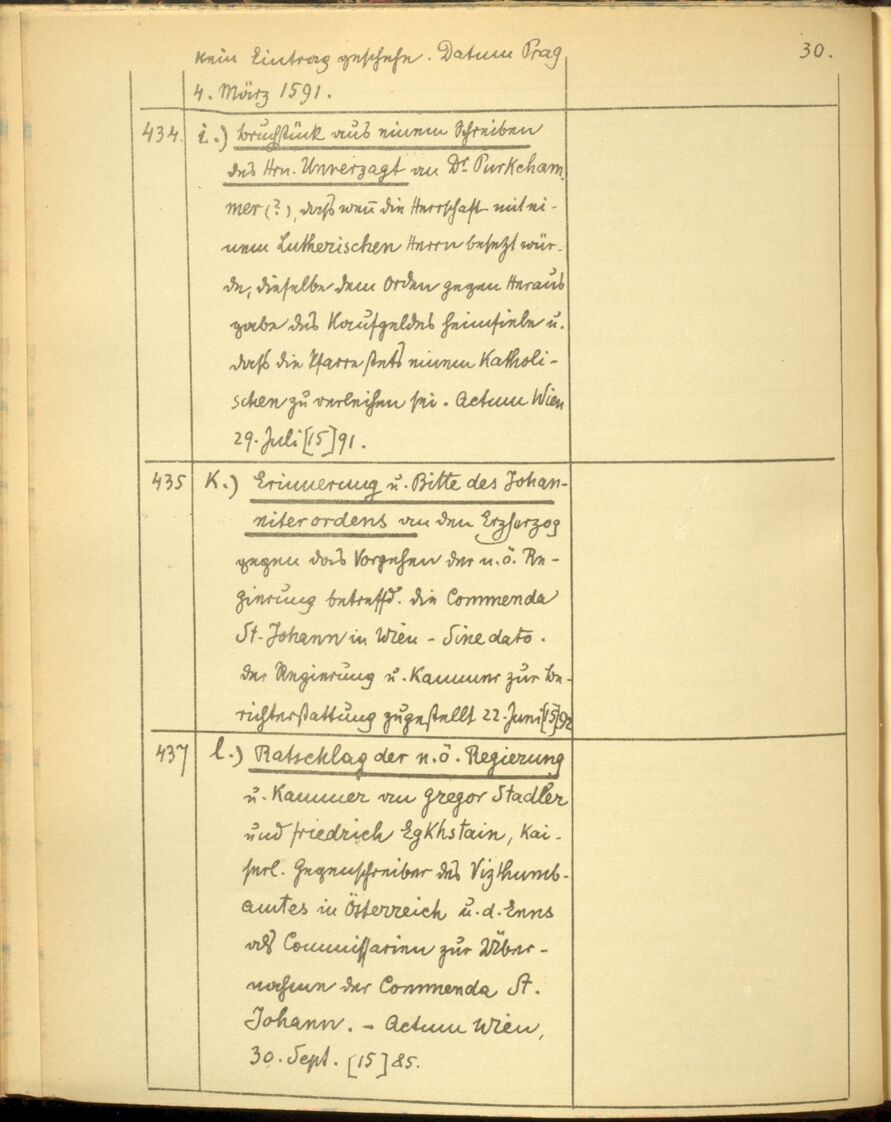 30.
kein Eintrag geschehe. Datum Prag
4. März 1591.
434. i.) Bruchstück aus einem Schreiben
des Hrn. Unverzagt an Dr. Purkcham
mer (?), daß wenn die Herrschaft mit ei-
nem Lutherischen Herrn besetzt wür-
de, dieselbe dem Orden gegen Heraus
gabe des Kaufgeldes heimfiele u.
daß die Pfarre stets einem Katholi-
schen zu verleihen sei. Actum Wien
29. Juli [15]91.
435 K.) Erinnerung u. Bitte des Johan-
niterordens an den Erzherzog
gegen das Vorgehen der n.ö. Re-
gierung betreffd. die Commenda
St. Johann in Wien - Sine dato.
der Regierung u. Kammer zur Be-
richterstattung zugestellt 22. Juni [15]92
437 l.) Ratschlag der n.ö. Regierung
u. Kammer an Gregor Stadler
und Friedrich Egkhstain, Kai-
serl. Gegenschreiber des Vizthumb-
amtes in Österreich u. d. Enns
als Commissarien zur Über-
nahme der Commenda St.
Johann. - Actum Wien,
30. Sept. [15]85.